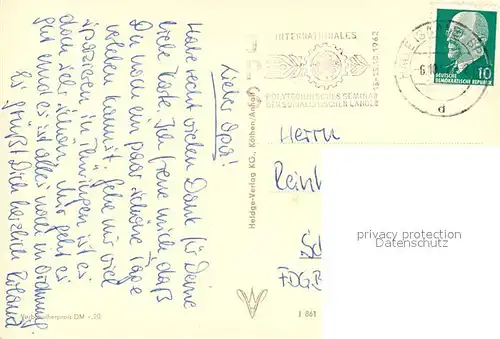 Lieber Opa!
Habe recht vielen Dank für Deine
liebe Karte. Ich freue mich, daß
Du noch ein paar schöne Tage
verleben kannst. Gehe nur viel
spazieren, in Thüringen ist es
doch sehr schön. Mir geht es
gut und es ist alles noch in Ordnung
Es grüßt Dich herzlich Roland
INTERNATIONALES
15.-25.10.1962
POLYTECHNISCHES SEMINAR
DER SOZIALISTISCHEN LÄNDER
6.10
d
10
DEUTSCHE
DEMOKRATISCHE REPUBLIK
Heldge-Verlag KG., Köthen/Anhalt
Herrn
Reinh
Sc
FDGB
privacy protection
www.ansichtskartenversand.com
Verbraucherpreis DM -.20
I 861